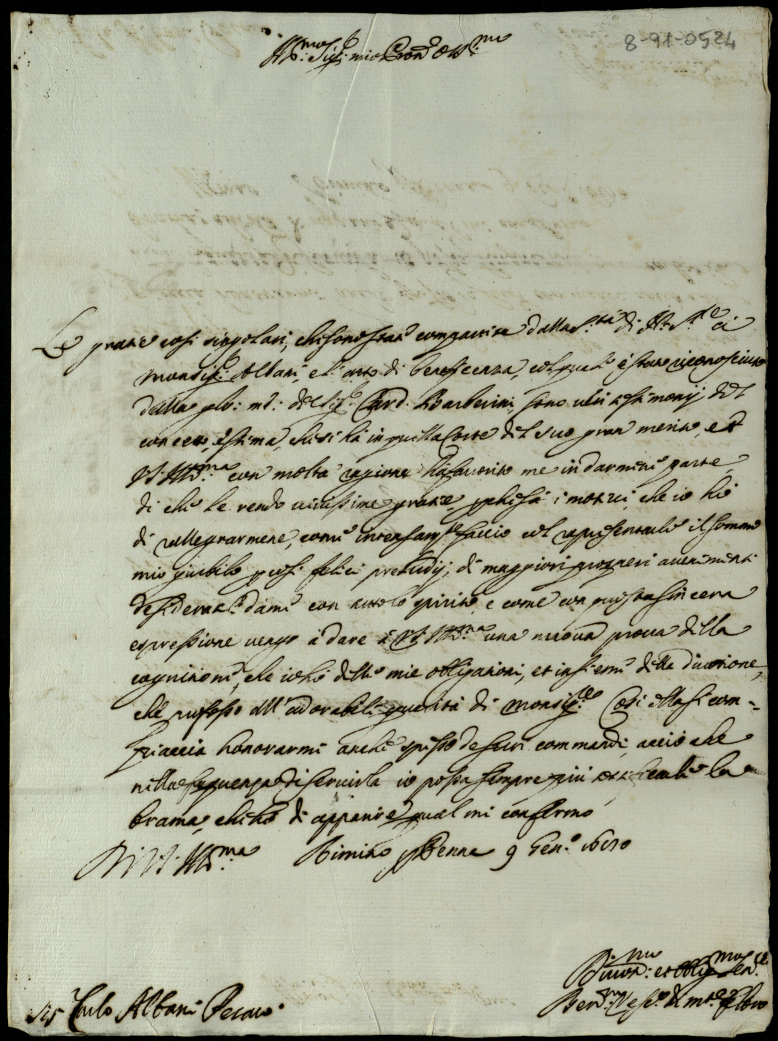 8-91-0524
Ill.mo Sig.r mio Pron Oss.mo
Le gratie così singolari, che sono state compartite dalla S.tà di N.ro S.re à
Monsig.r Albani, e l'atto di beneficenza, col quale è stato riconosciuto
dalla glo: me: del Sig.r Card. Barberini, sono veri testimonij del
concetto, e stima, che si hà in quella Corte del suo gran merito, e
V.S. Ill.ma con molta ragione hà favorito me in darmene parte,
di che le rendo vivissime gratie, per i motivi, che io hò
di rallegrarmene, come intensam.te faccio col rapresentarle il sommo
mio giubilo per sì felici preludij, di maggiori prosperi avenimenti
desiderati da me con tutto lo spirito, e come con questa sincera
espressione vengo à dare à V.S. Ill.ma una nuova prova della
cognitione, che io hò delle mie obligationi, et insieme della divotione,
che professo all'adorabili qualità di Monsig.re Così ella si com-
piaccia honorarmi anche spesso de suoi commandi, acciò che
nella frequenza di servirla io possa sempre più la
brama, che hò di apparire qual mi confermo
Di V.S. Ill.ma Rimino Penna 9 Gen.o 1680
Divot.mo et Oblig.mo Ser.re
Ber.no Vesc.o di
Sig.r Carlo Albani Pesaro